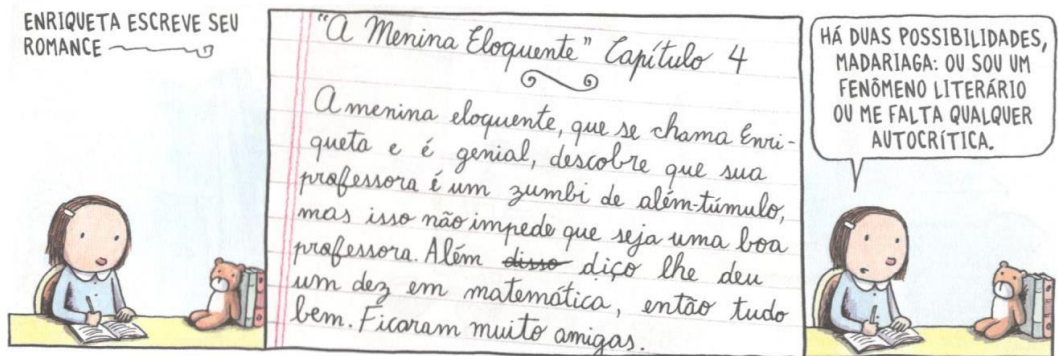 ENRIQUETA ESCREVE SEU
ROMANCE
"A Menina Eloquente" Capítulo 4
A menina eloquente, que se chama Enri-
queta e é genial, descobre que sua
professora é um zumbi de além-túmulo,
mas isso não impede que seja uma boa
professora. Além disso diço lhe deu
um dez em matemática, então tudo
bem. Ficaram muito amigas.
HÁ DUAS POSSIBILIDADES,
MADARIAGA: OU SOU UM
FENÔMENO LITERÁRIO
OU ME FALTA QUALQUER
AUTOCRÍTICA.